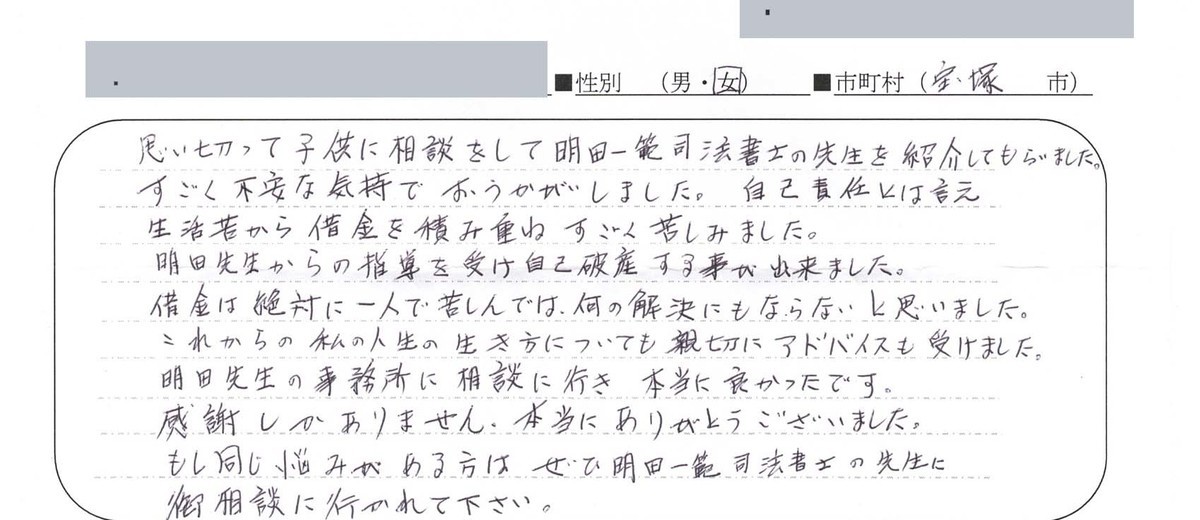 ■性別 （男・女） ■市町村（宝塚 市）
思い切って子供に相談をして明田一範司法書士の先生を紹介してもらいました。
すごく不安な気持で おうかがいしました。 自己責任とは言え
生活苦から借金を積み重ね すごく苦しみました。
明田先生からの指導を受け自己破産する事が出来ました。
借金は絶対に一人で苦しんでは、何の解決にもならないと思いました。
これからの私の人生の生き方についても親切にアドバイスも受けました。
明田先生の事務所に相談に行き 本当に良かったです。
感謝しかありません。本当にありがとうございました。
もし同じ悩みがある方は ぜひ明田一範司法書士の先生に
御相談に行かれて下さい。